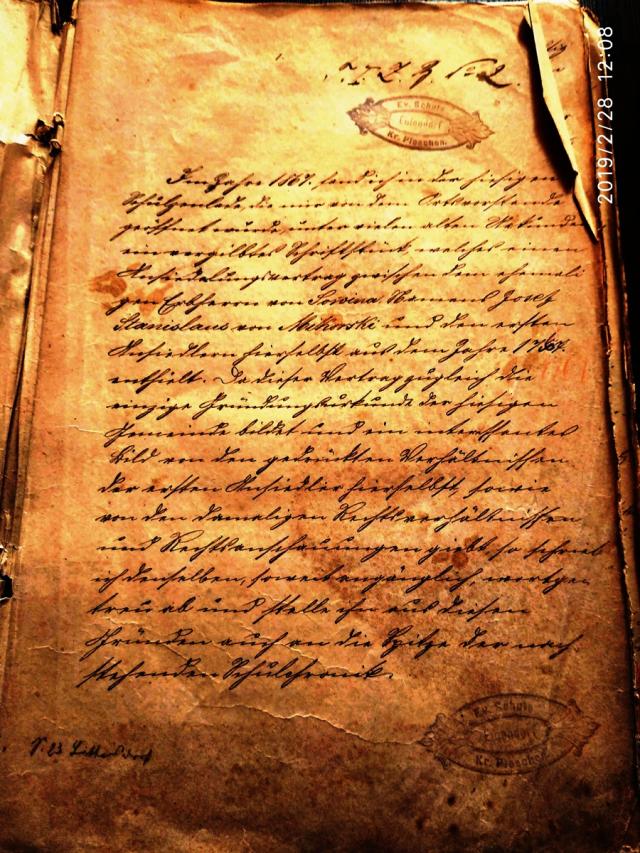 Ev. Schule
Eulendorf
Kr. Pleschen.
Im Jahre 1867. fand ich in der hiesigen
Schulzenlade, die mir von dem Ortsvorstande
geöffnet wurde, unter vielen alten Urkunden
ein vergilbtes Schriftstück, welches einen
Ansiedelungsvertrag zwischen dem ehemali
gen Erbherrn von Sowina, Namens Josef
Stanislaus von Mikorski und den ersten
Ansiedlern hierselbst aus dem Jahre
enthielt. Da dieser Vertrag zugleich die
einzige Gründungsurkunde der hiesigen
Gemeinde bildet und ein interessantes
Bild von den gedrückten Verhältnissen
der ersten Ansiedler hierselbst, sowie
von den damaligen Rechtsverhältnissen
und Rechtsanschauungen giebt, so schrieb
ich denselben, soweit angänglich, wortge
treu ab und stelle ihn aus diesen
Gründen auch an die Spitze der nach-
stehenden Schulchronik.
Ev. Schule
Eulendorf
Kr. Pleschen
2019/2/28 12:08